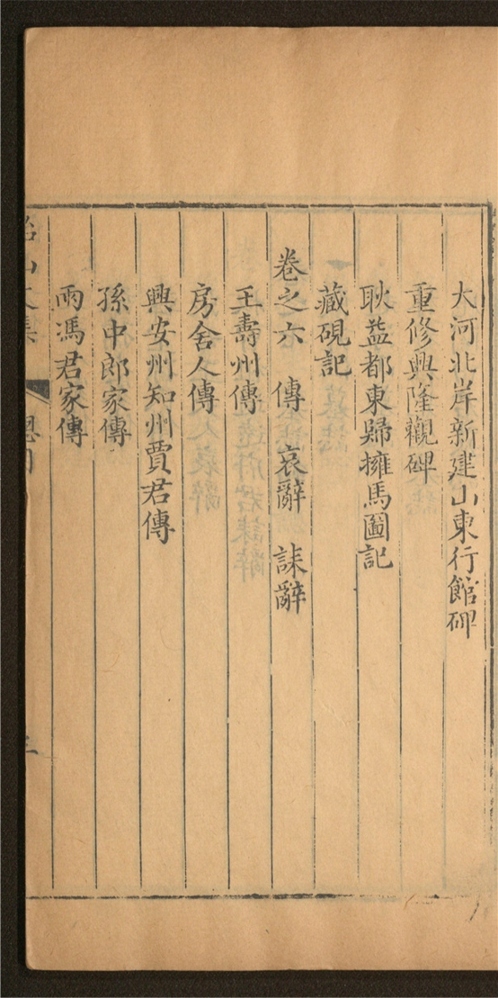 大河北岸新建山東行館碑
重修興隆觀碑
耿益都東歸擁馬圖記
藏硯記
卷之六 傳 哀辭 誄辭
王壽州傳
房舍人傳
興安州知州賈君傳
孫中郎家傳
兩馮君家傳